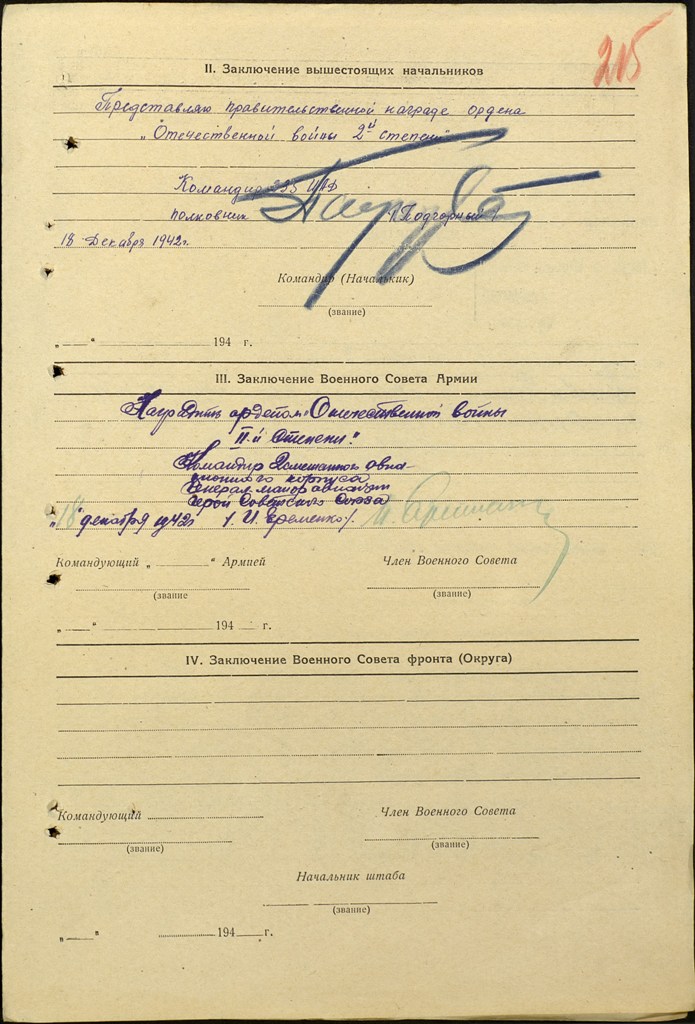 215
II. Заключение вышестоящих начальников
Представляю правительственной награде ордена
„Отечественной войны 2й степени"
Командир 235 ИАД
полковник /Подгорный/
18 Декабря 1942г.
Командир (Начальник)
(звание)
„ “ 194 г.
III. Заключение Военного Совета Армии
Наградить орденом „Отечественной войны
II-й Степени"
Командир Смешанного авиа-
ционного корпуса
Генерал-майор авиации
Герой Советского Союза
"18" декабря 1942г /И. Еременко/.
Командующий „ “ Армией Член Военного Совета
(звание (звание)
„ “ 194 г.
IV. Заключение Военного Совета фронта (Округа)
Командующий Член Военного Совета
(звание) (звание)
Начальник штаба
(звание)
„ “ 194 г.